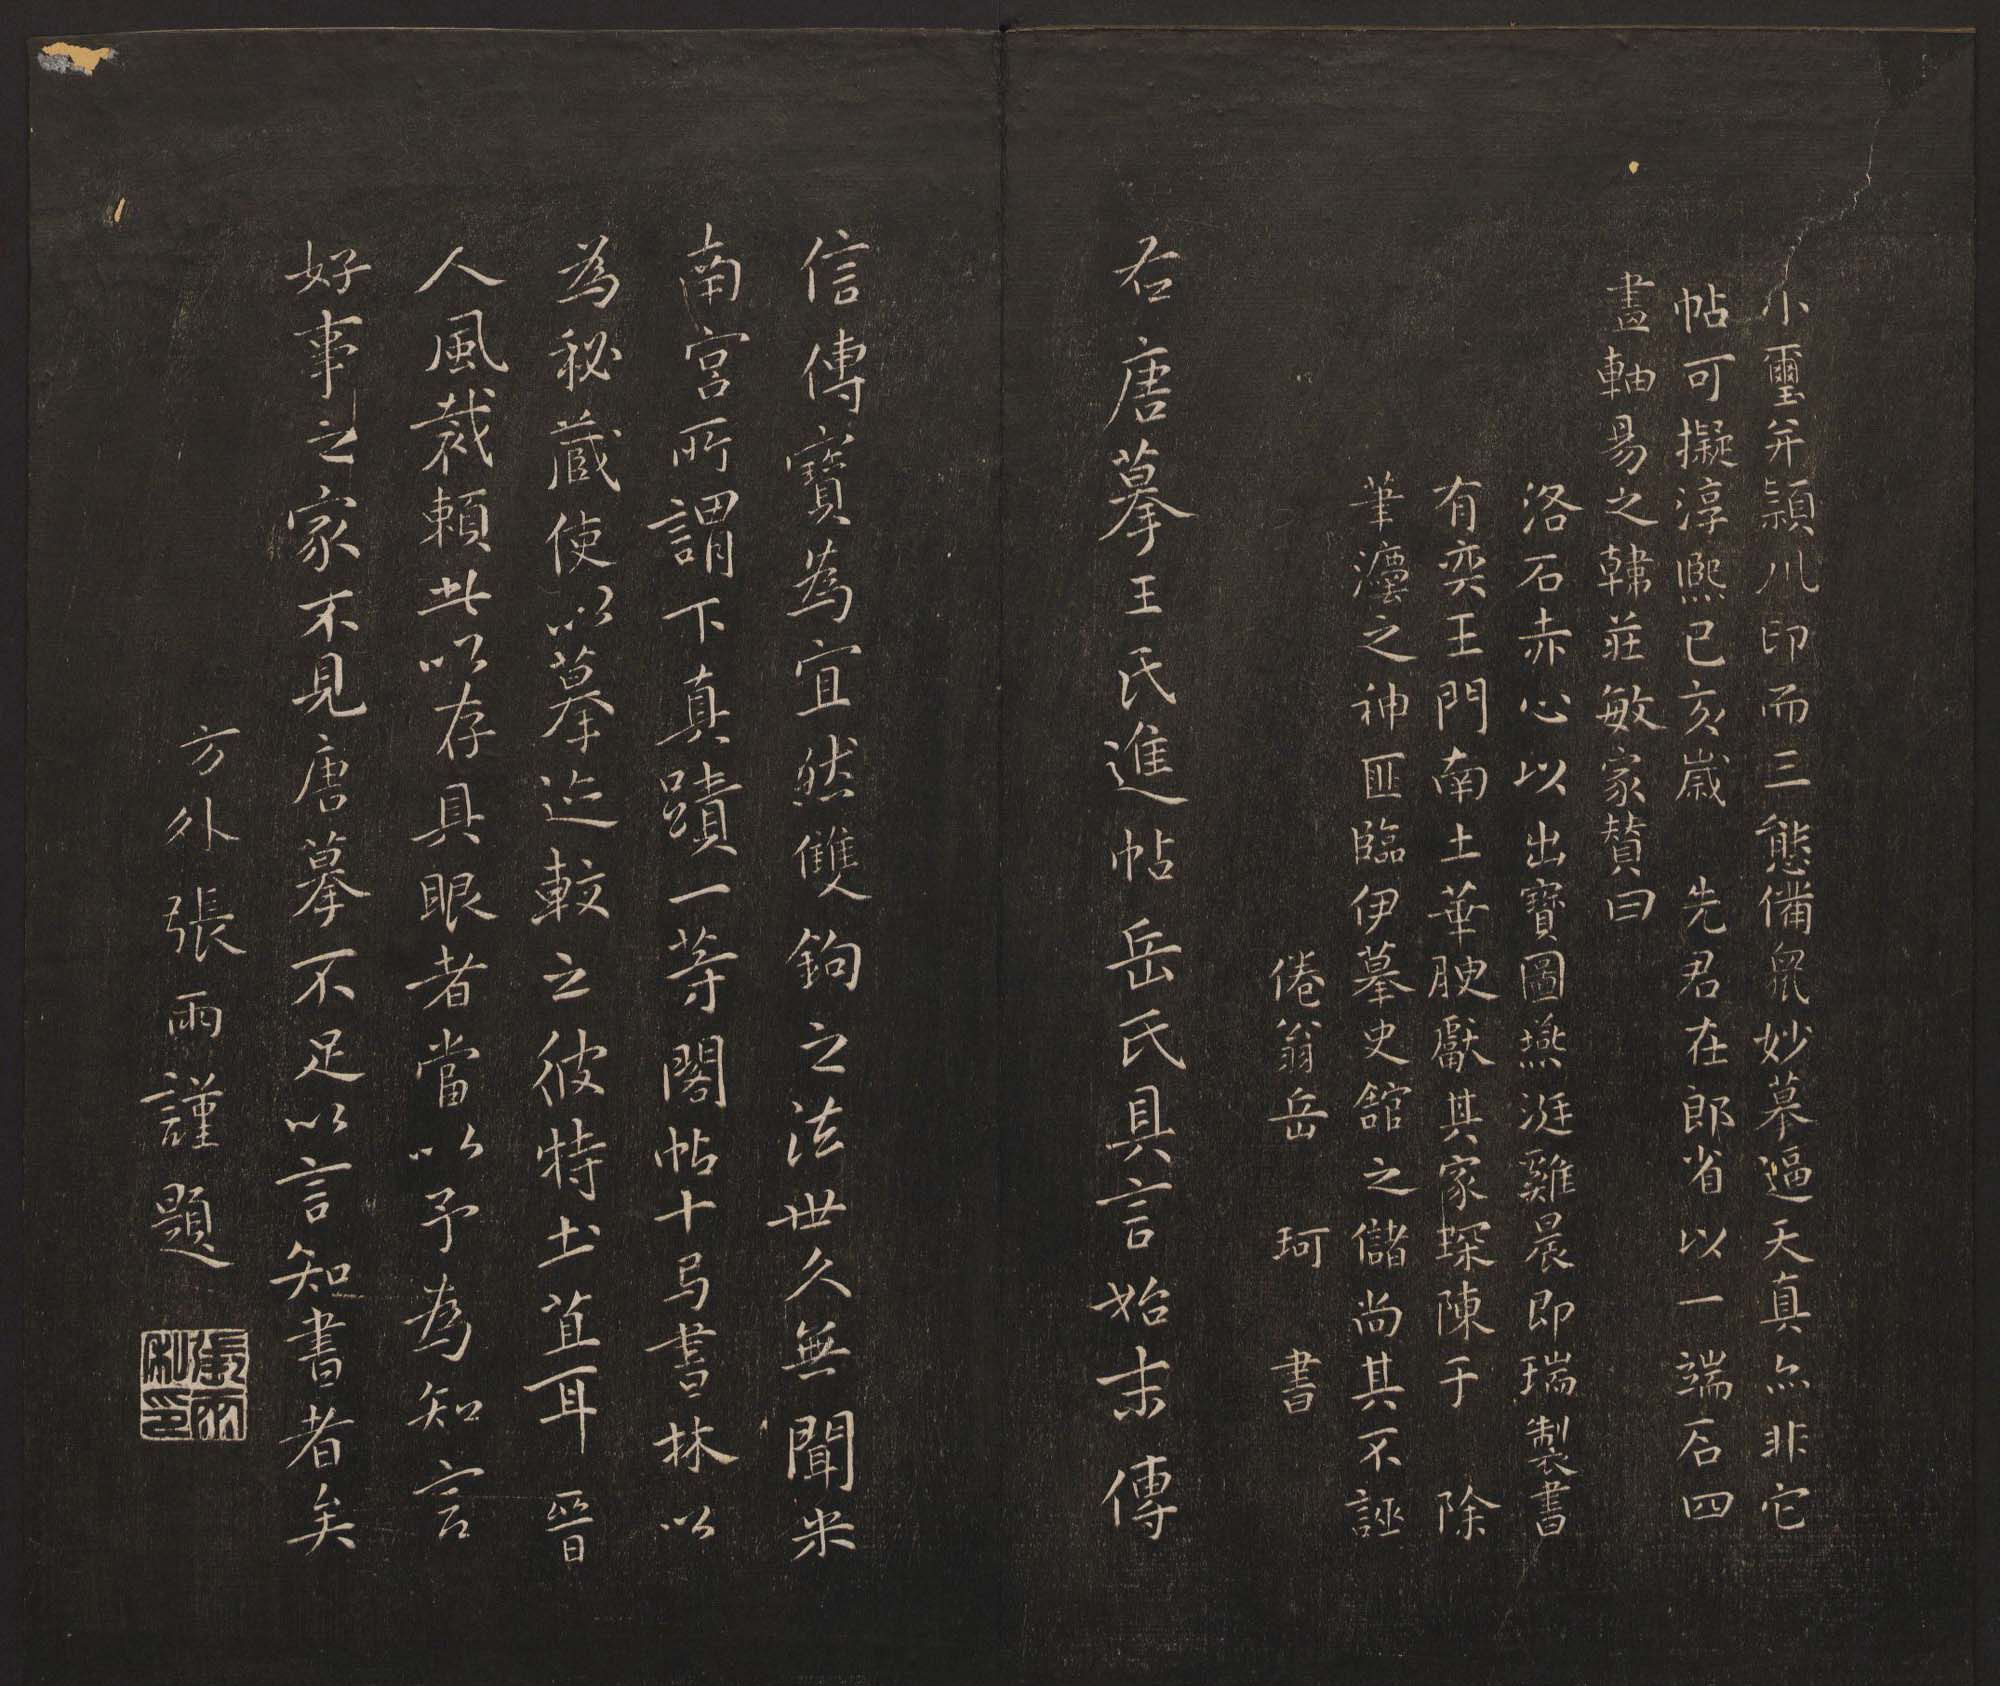 小璽并潁川印而三態備衆妙摹逼天真亦非它
帖可擬淳熙已亥歲先君在郎省以一端石四
畫軸易之韓莊敏家贊曰
洛石赤心以出寶圖燕涎雞晨即瑞製書
有奕王門南土華腴獻其家琛陳于除
筆灋之神匪臨伊摹史館之儲尚其不誣
倦翁岳珂書
右唐摹王氏進帖岳氏具言始末傳
信傳寶為宜然雙鉤之法世久無聞米
南宮所謂下真蹟一等閣帖十号書林以
為秘藏使以摹迹較之彼特土苴耳晉
人風裁賴此以存具眼者當以予為知言
好事之家不見唐摹不足以言知書者矣
方外張雨謹題
張雨私印